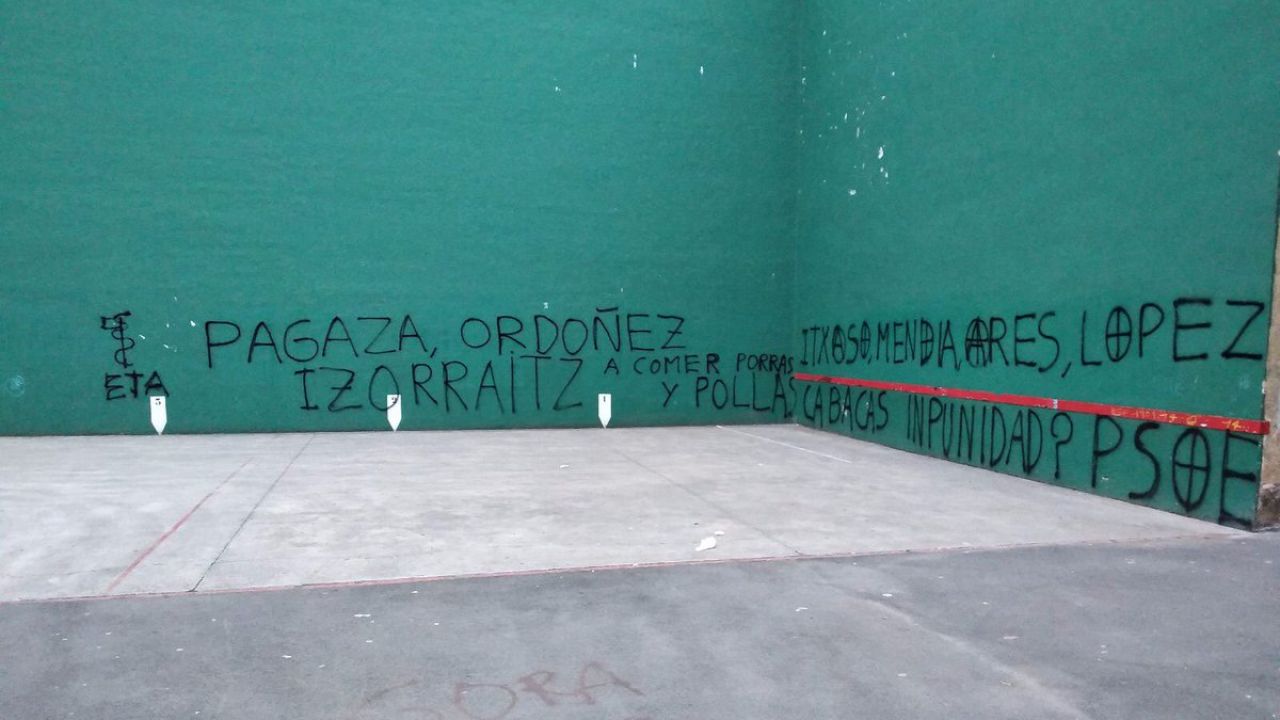 ETA
PAGAZA, ORDOÑEZ
IZORRAITZ
A COMER PORRAS
Y POLLAS
ITXOSO, MENDIA, ARES, LOPEZ
CABACAS INPUNIDAD? PSOE
3
2
1
GORA